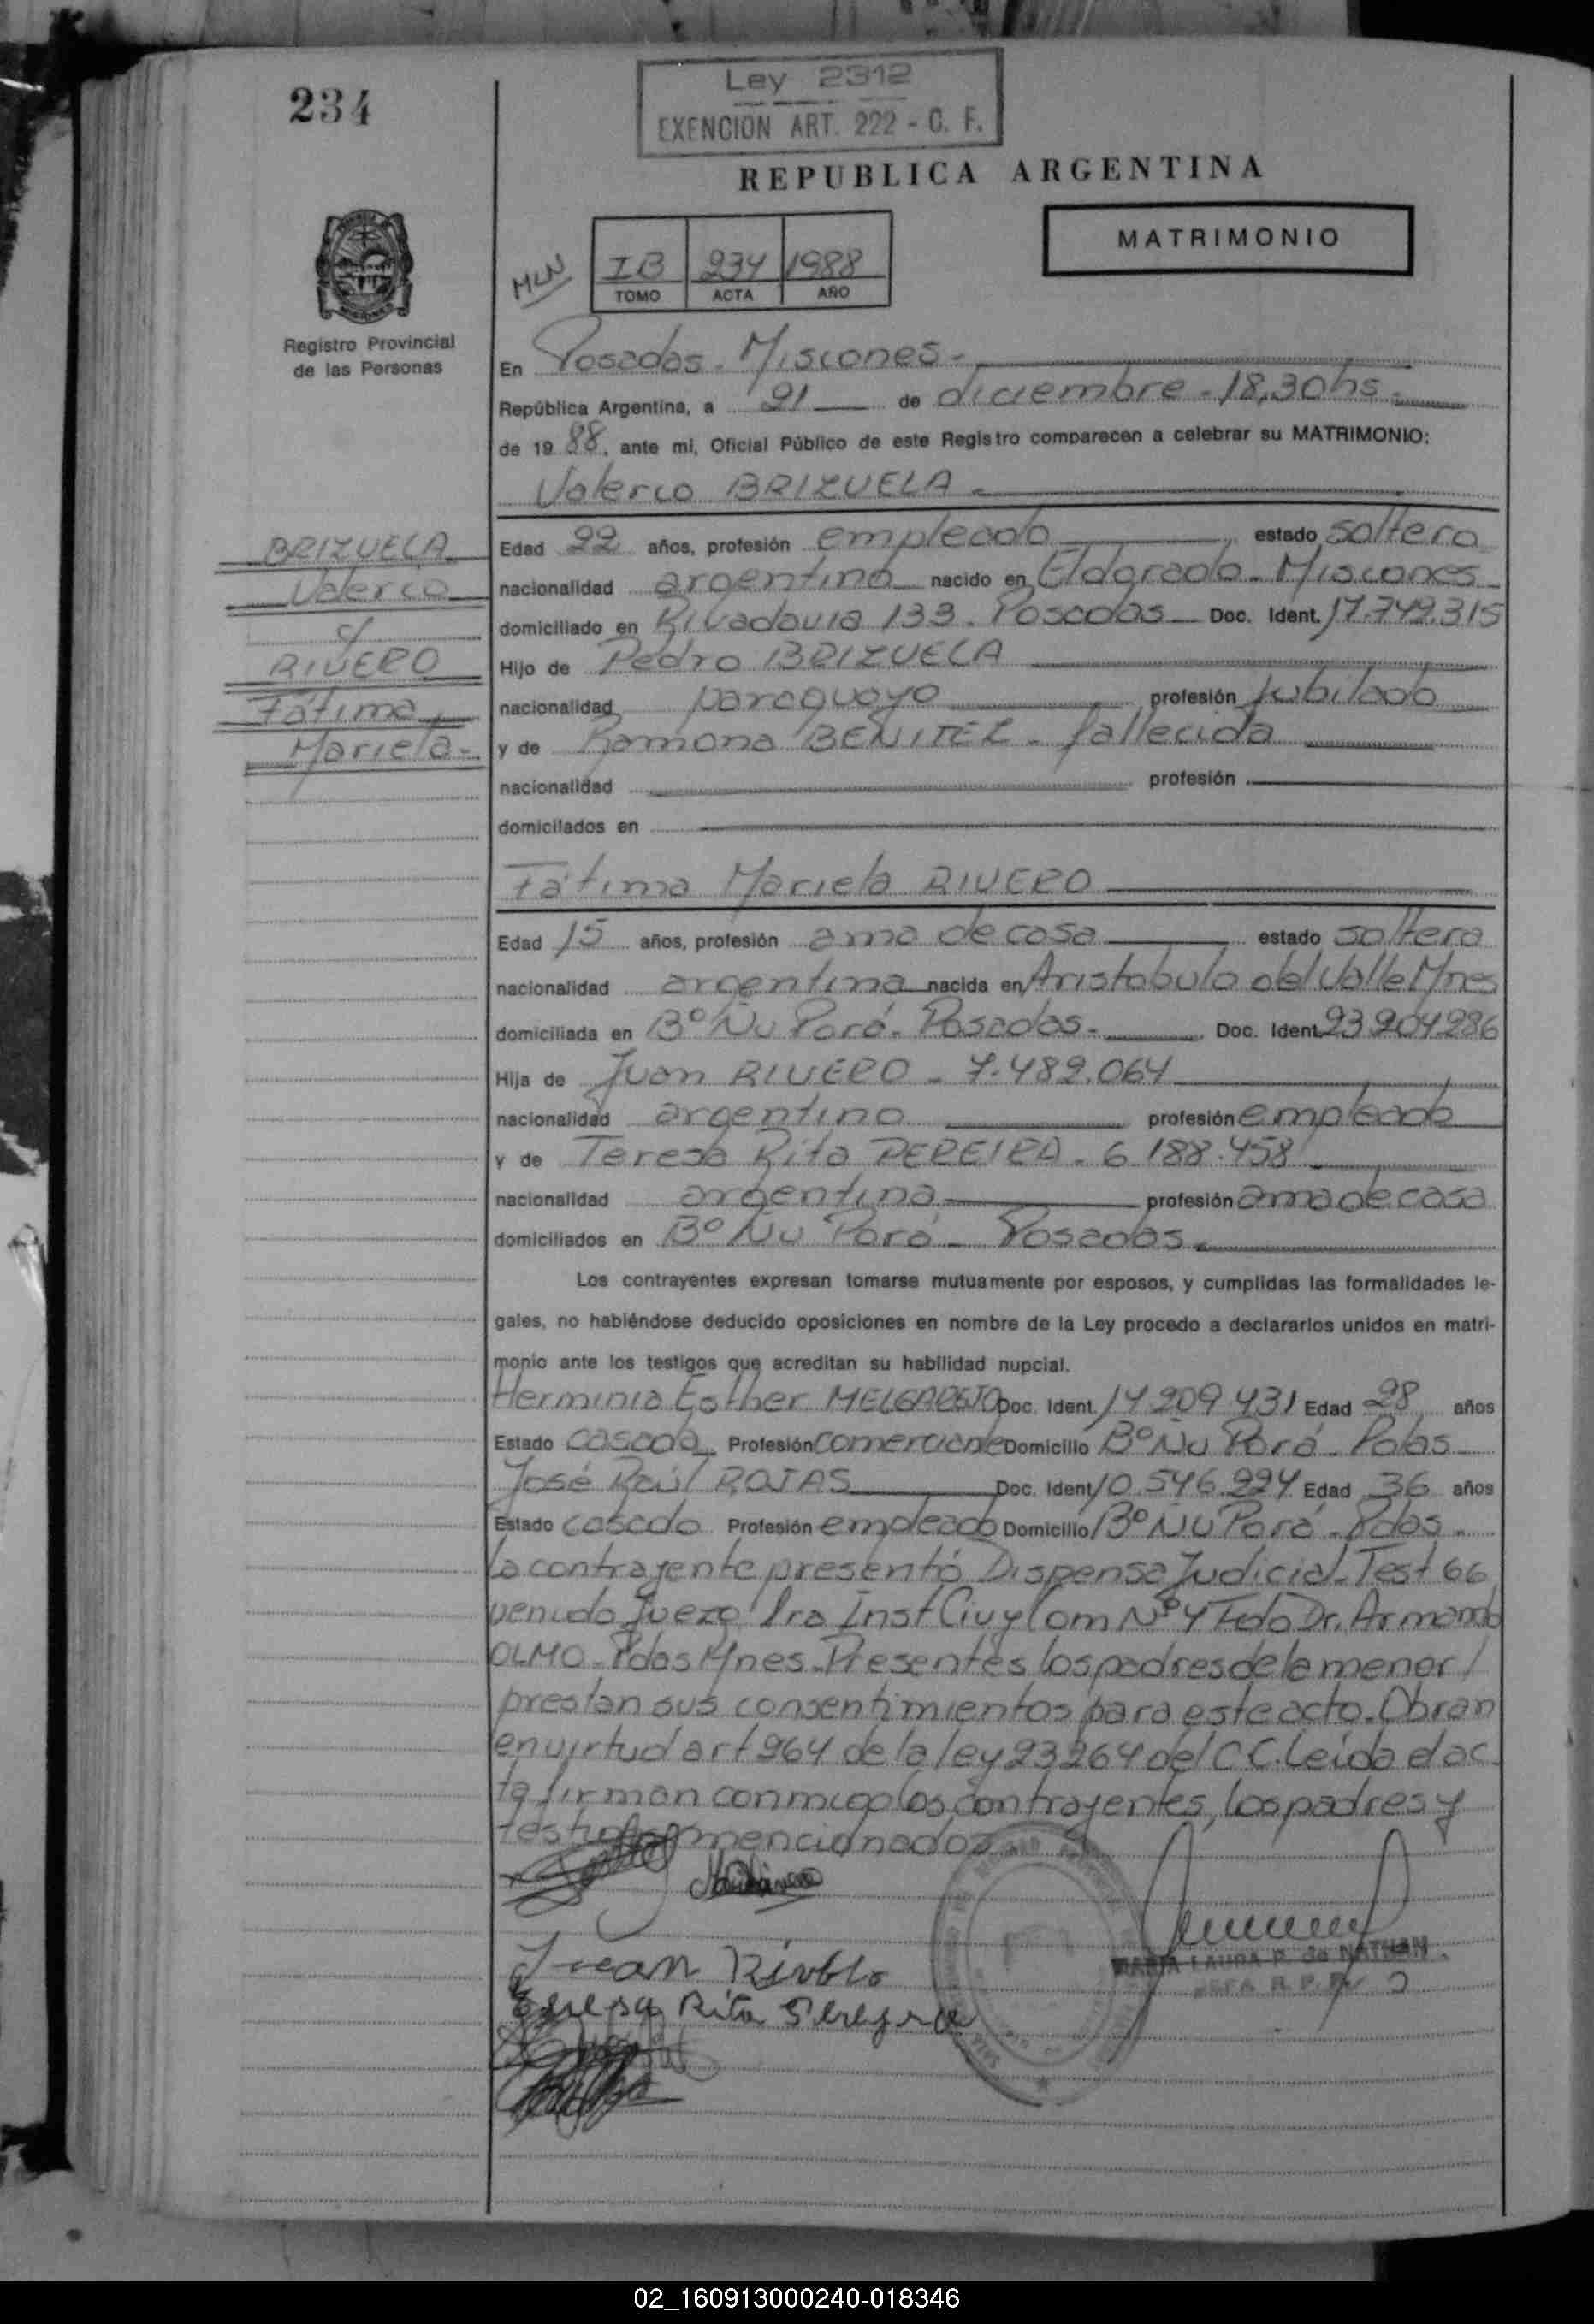 234
Ley 2312
EXENCION ART. 222 - C. F.
REPUBLICA ARGENTINA
MATRIMONIO
MLN
IB 234 1988
TOMO ACTA AÑO
Registro Provincial
de las Personas
En Posadas - Misiones -
República Argentina, a 21 de diciembre - 18,30 hs -
de 19 88, ante mi, Oficial Público de este Registro comparecen a celebrar su MATRIMONIO:
Valerio BRIZUELA -
BRIZUELA
Valerio
c/
RIVERO
Fátima
Mariela -
Edad 22 años, profesión empleado estado soltero
nacionalidad argentino nacido en Eldorado - Misiones
domiciliado en Rivadavia 133 - Posadas Doc. Ident. 17.742.315
Hijo de Pedro BRIZUELA
nacionalidad paraguayo profesión jubilado
y de Ramona BENITEZ - fallecida
nacionalidad profesión
domicilados en
Fátima Mariela RIVERO
Edad 15 años, profesión ama de casa estado soltera
nacionalidad argentina nacida en Aristobulo del Valle Mnes
domiciliada en Bº Ñu Porá - Posadas - Doc. Ident. 23 904 286
Hija de Juan RIVERO - 7.489.064
nacionalidad argentino profesión empleado
y de Teresa Rita PEREIRA - 6 188.458
nacionalidad argentina profesión ama de casa
domiciliados en Bº Ñu Porá - Posadas -
Los contrayentes expresan tomarse mutuamente por esposos, y cumplidas las formalidades le-
gales, no habiéndose deducido oposiciones en nombre de la Ley procedo a declararlos unidos en matri-
monio ante los testigos que acreditan su habilidad nupcial.
Herminia Esther MELGAREJO Doc. Ident. 14 209 431 Edad 28 años
Estado casada Profesión comerciante Domicilio Bº Ñu Porá - Pdas
José Raúl ROJAS Doc. Ident. 10.546.224 Edad 36 años
Estado casado Profesión empleado Domicilio Bº Ñu Porá - Pdas -
la contrayente presentó Dispensa Judicial - Test 66
venido Juezg 1ra Inst Civ y Com Nº 4 Fdo Dr. Armando
OLMO - Pdas Mnes - Presentes los padres de la menor /
prestan sus consentimientos para este acto. Obran
en virtud art 264 de la ley 23264 del C C. Leida el ac
ta firman conmigo los contrayentes, los padres y
testigos mencionados
Juan Rivero
Teresa Rita Pereyra
MARIA LAURA P. de NATHAN
JEFA R. P.
02_160913000240-018346